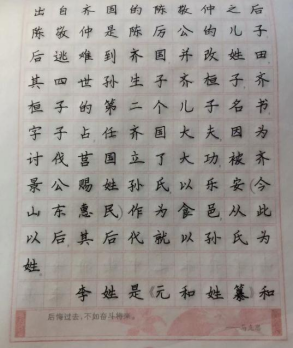 出自齐国的陈敬仲之后
陈敬仲是陈厉公的儿子
后逃难到齐国并改姓田
其四世孙生子齐桓子齐
桓子的第二个儿子名书
字子占任齐国大夫因为
讨伐莒国立了大功被齐
景公赐姓孙氏以乐安(今
山东惠民)作为食邑从此
以后其后代就以孙氏为
姓。
李姓是《元和姓纂》和
后悔过去,不如奋斗将来。